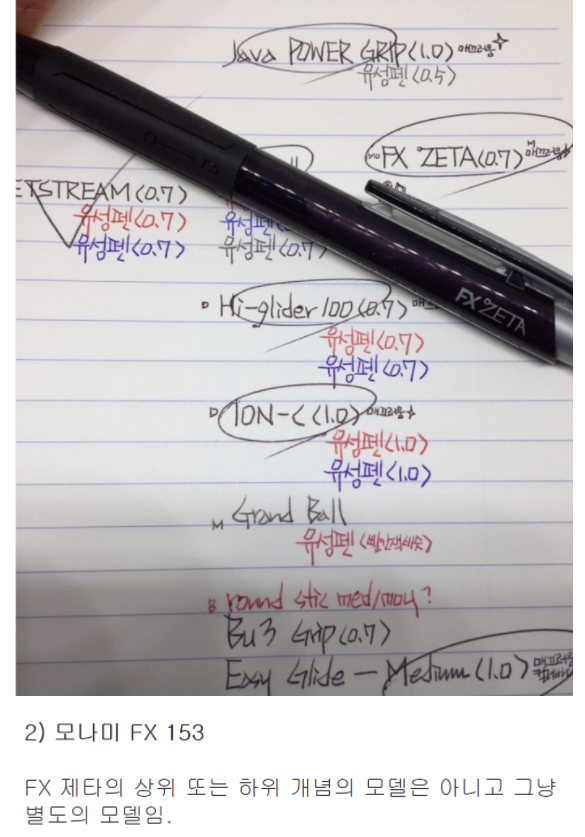 Java POWER GRIP(1.0) 매끄러움
유성펜(0.5)
FX ZETA(0.7) 매끄러움
ETSTREAM(0.7)
유성펜(0.7) 유성펜(0.7)
유성펜(0.7) 유성펜(0.7)
Hi-glider 100(0.7)
FX ZETA
유성펜(0.7)
유성펜(0.7)
ION-C(1.0) 매끄러움
유성펜(1.0)
유성펜(1.0)
M Grand Ball
유성펜
B round stic med/moy?
Bu3 Grip(0.7)
Easy Glide - Medium(1.0) 매끄러움
2) 모나미 FX 153
FX 제타의 상위 또는 하위 개념의 모델은 아니고 그냥
별도의 모델임.